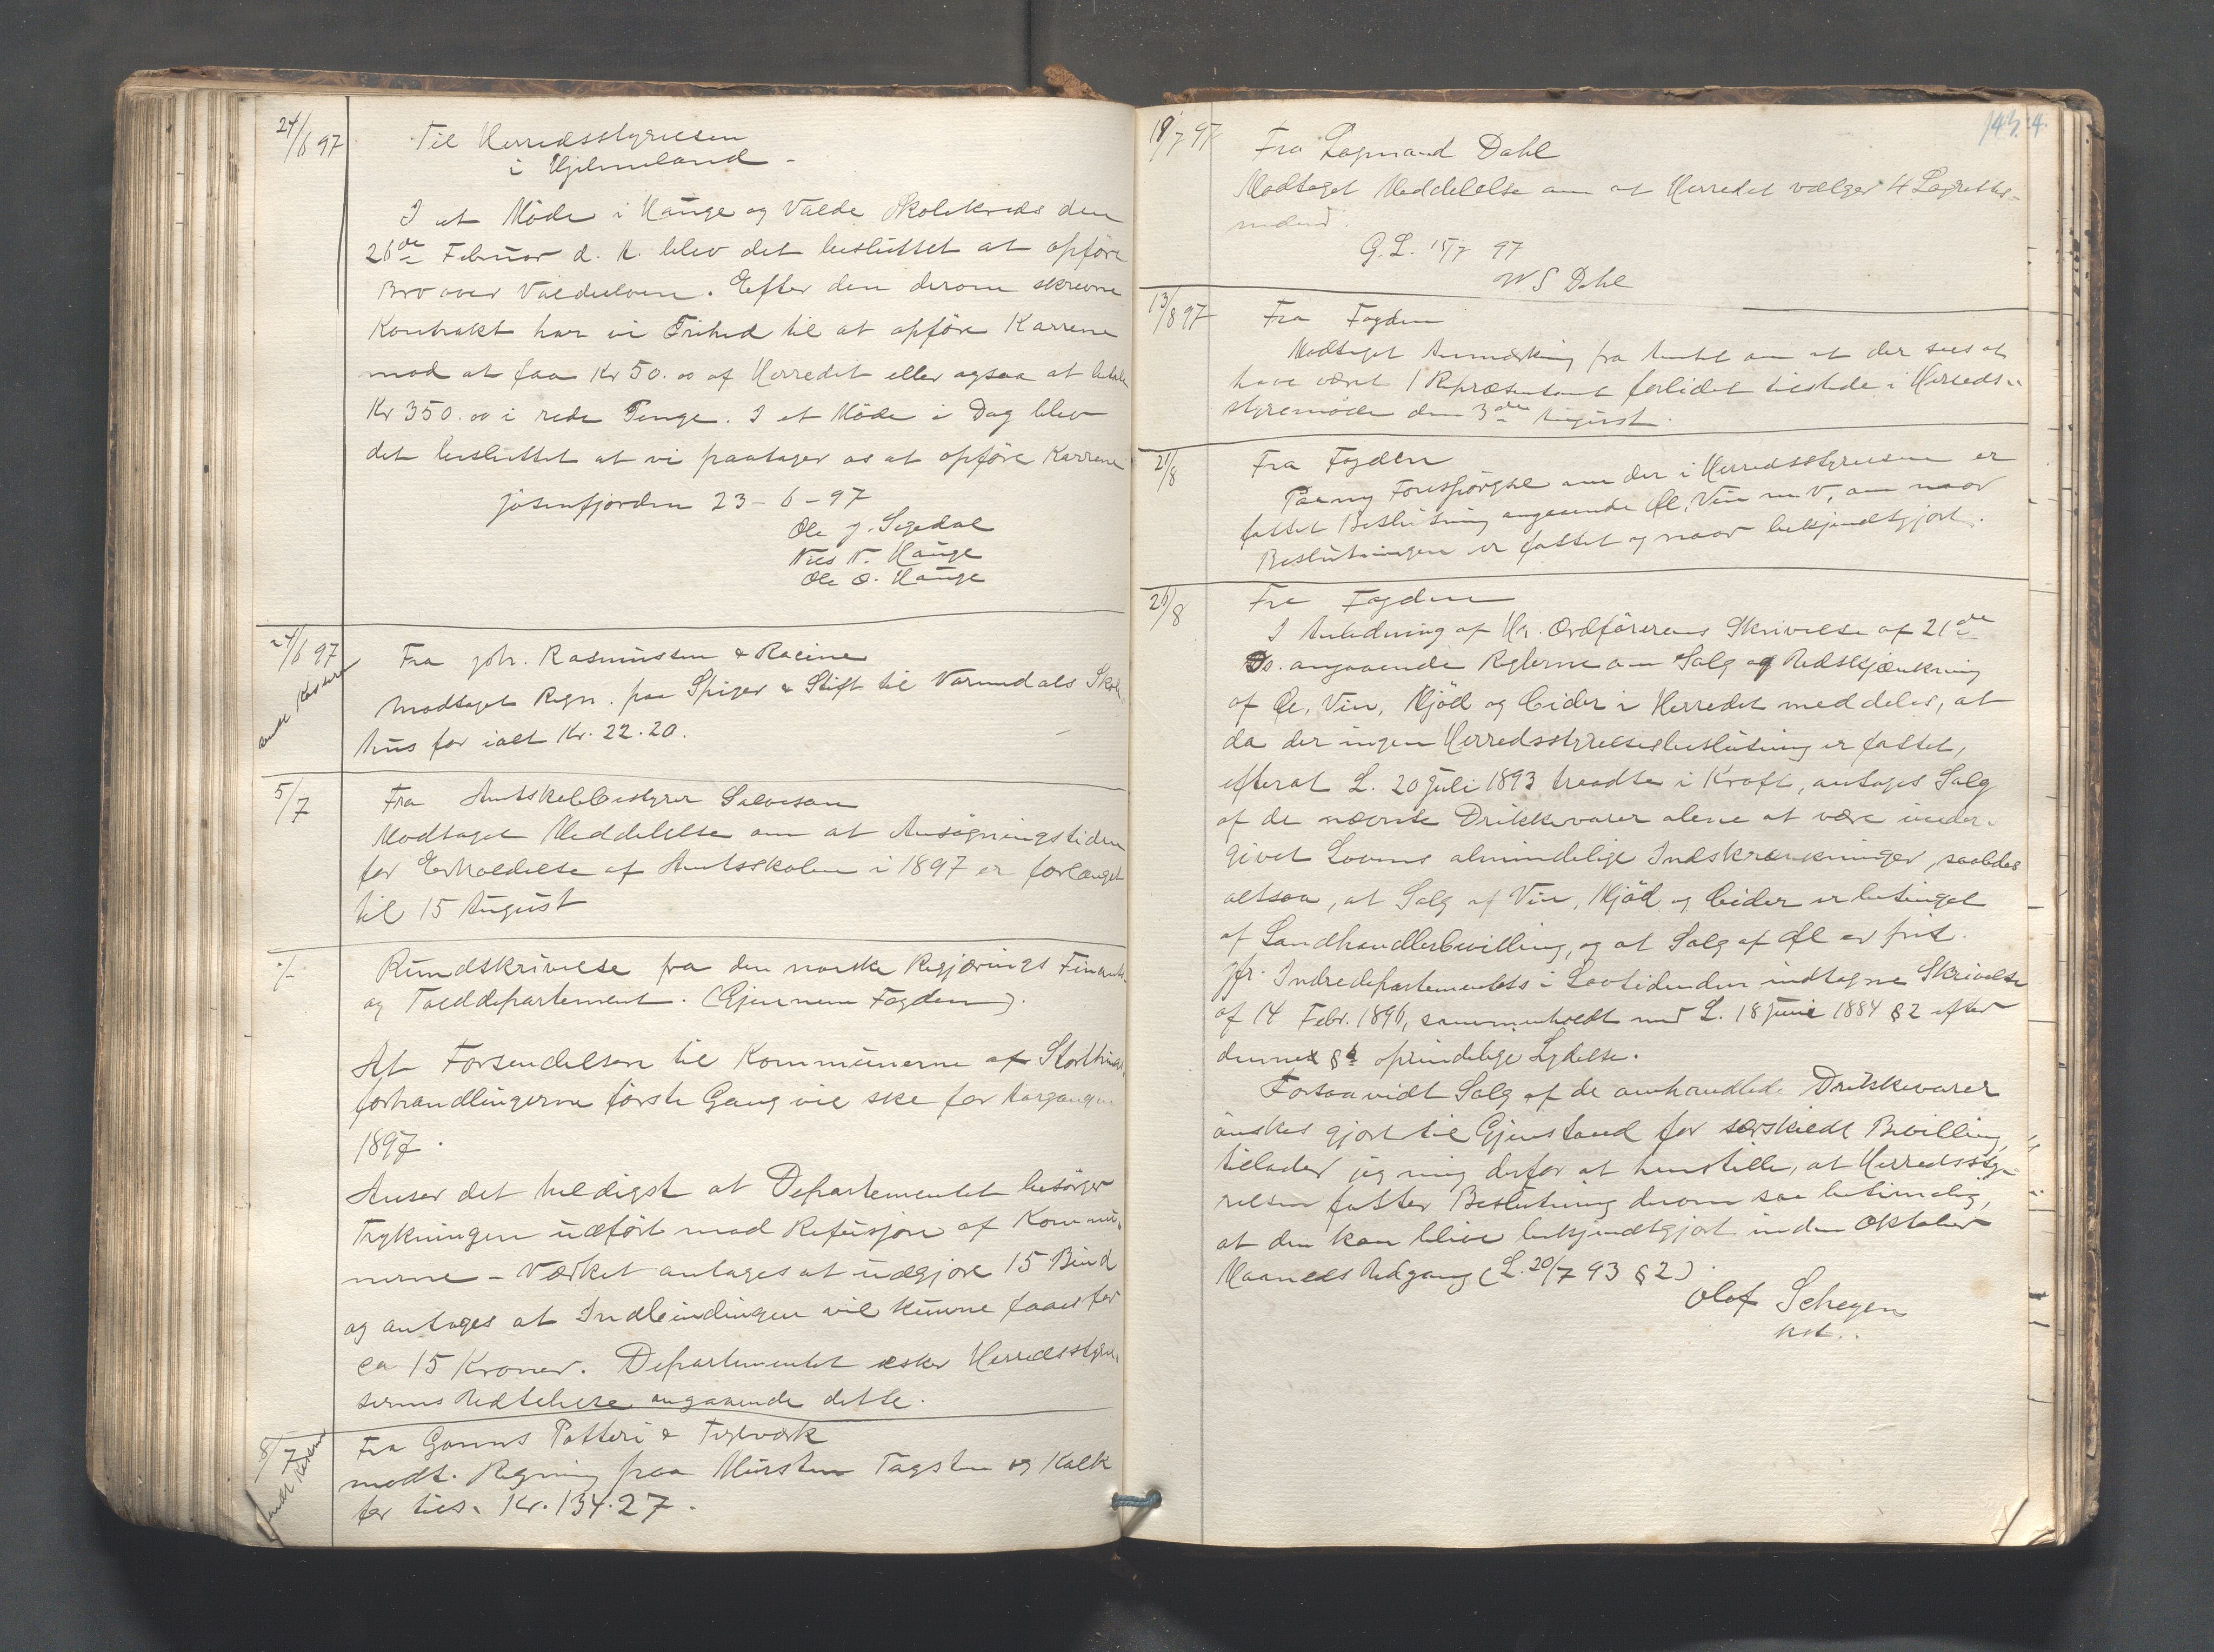 24/6 97
Til Herredsstyrelsen
i Hjelmeland -
I et Möde i Hauge og Valde Skolekreds den
26de Februar d. A. blev det besluttet at opföre
Bro over Valdeelven. Efter den derom skrevne
Kontrakt har vi Frihed til at opföre Karrene
mod at faa Kr 50.00 af Herredet eller ogsaa at betale
Kr 350.00 i rede Penge. I et Möde i Dag blev
det besluttet at vi paatager os at opföre Karrene
Jösenfjorden 23-6-97
Ole J. Segedal
Nils N. Hauge
Ole O. Hauge
24/6 97
Fra Joh. Rasmussen & Racine
Modtaget Regn. paa Spiger & Stift til Vormdals Skole
hus for ialt Kr. 22.20.
5/7
Fra Amtskolebestyrer Salvesen
Modtaget Meddelelse om at Ansögningstiden
for Erholdelse af Amtsskolen i 1897 er forlænget
til 15 August
-/-
Rundskrivelse fra den norske Regjerings Finants
og Tolddepartement. (Gjennem Fogden).
At Forsendelsen til Kommunerne af Storthings
forhandlingerne förste Gang vil ske for Aargangen
1897.
Anser det heldigst at Departementet besörger
Trykningen udfört mod Refusjon af Kommu-
nerne - Værket antages at udgjöre 15 Bind
og antages at Indbindingen vil kunne faaes for
ca 15 Kroner. Departementet æsker Herredsstyrel-
sernes Udtalelse angaaende dette.
8/7
Fra Ganns Potteri & Teglværk
modt. Regning paa Mursten Tagsten og Kalk
for tils. Kr. 134.27.
143. 4.
19/7 97
Fra Lagmand Dahl
Modtaget Meddelelse om at Herredet vælger 4 Lagrettes-
mænd.
G. L. 15/7 97
W S Dahl
13/8 97
Fra Fogden
Modtaget Anmærkning fra Amtet om at der sees at
have været 1 Repræsentant forlidet tilstede i Herreds-
styremöde den 3die August.
21/8
Fra Fogden
Paany Forespörgsel om der i Herredsstyrelsen er
fattet Beslutning angaaende Öl, Vin m. v, om naar
Beslutningen er fattet og naar bekjendtgjort.
26/8
Fra Fogden
I Anledning af Hr. Ordförerens Skrivelse af 21de
Ds. angaaende Reglerne om Salg og Udskjænkning
af Öl, Vin, Mjöd og Cider i Herredet meddeles, at
da der ingen Herredsstyrelsesbeslutning er fattet,
efterat L. 20 Juli 1893 traadte i Kraft, antages Salg
af de nævnte Drikkevarer alene at være under-
givet Lovens almindelige Indskrænkninger, saaledes
altsaa, at Salg af Vin, Mjöd og Cider er betinget
af Landhandlerbevilling, og at Salg af Öl er frit.
jfr. Indredepartementets i Lovtidenden indtagne Skrivelse
af 14 Febr. 1896, sammenholdt med L. 18 Juni 1884 § 2 efter
dennes § oprindelige Lydelse.
Forsaavidt Salg af de omhandlede Drikkevarer
önskes gjort til Gjenstand for særskildt Bevilling,
tillader jeg mig derfor at henstille, at Herredssty-
relsen fatter Beslutning derom saa betimelig,
at den kan blive bekjendtgjort inden Oktober
Maaneds Udgang (L. 20/7 93 § 2).
Olaf Scheyen
kst.